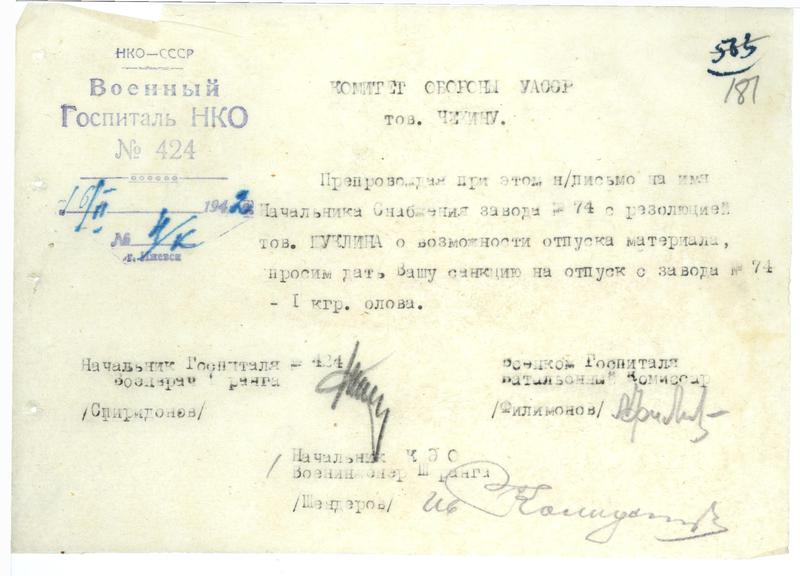 НКО—СССР
Военный
Госпиталь НКО
№ 424
16/II 1942
№ 4/К
г. Ижевск
565
181
КОМИТЕТ ОБОРОНЫ УАССР
тов. ЧЕКИНУ.
Препровождая при этом н/письмо на имя
Начальника Снабжения завода № 74 с резолюцией
тов. ШУКЛИНА о возможности отпуска материала,
просим дать Вашу санкцию на отпуск с завода № 74
- I кгр. олова.
Начальник Госпиталя № 424
Военврач ранга
/Спиридонов/
Военком Госпиталя
Батальонный Комиссар
/Филимонов/
Начальник К Э О
Военинженер Ш ранга
/Шендеров/